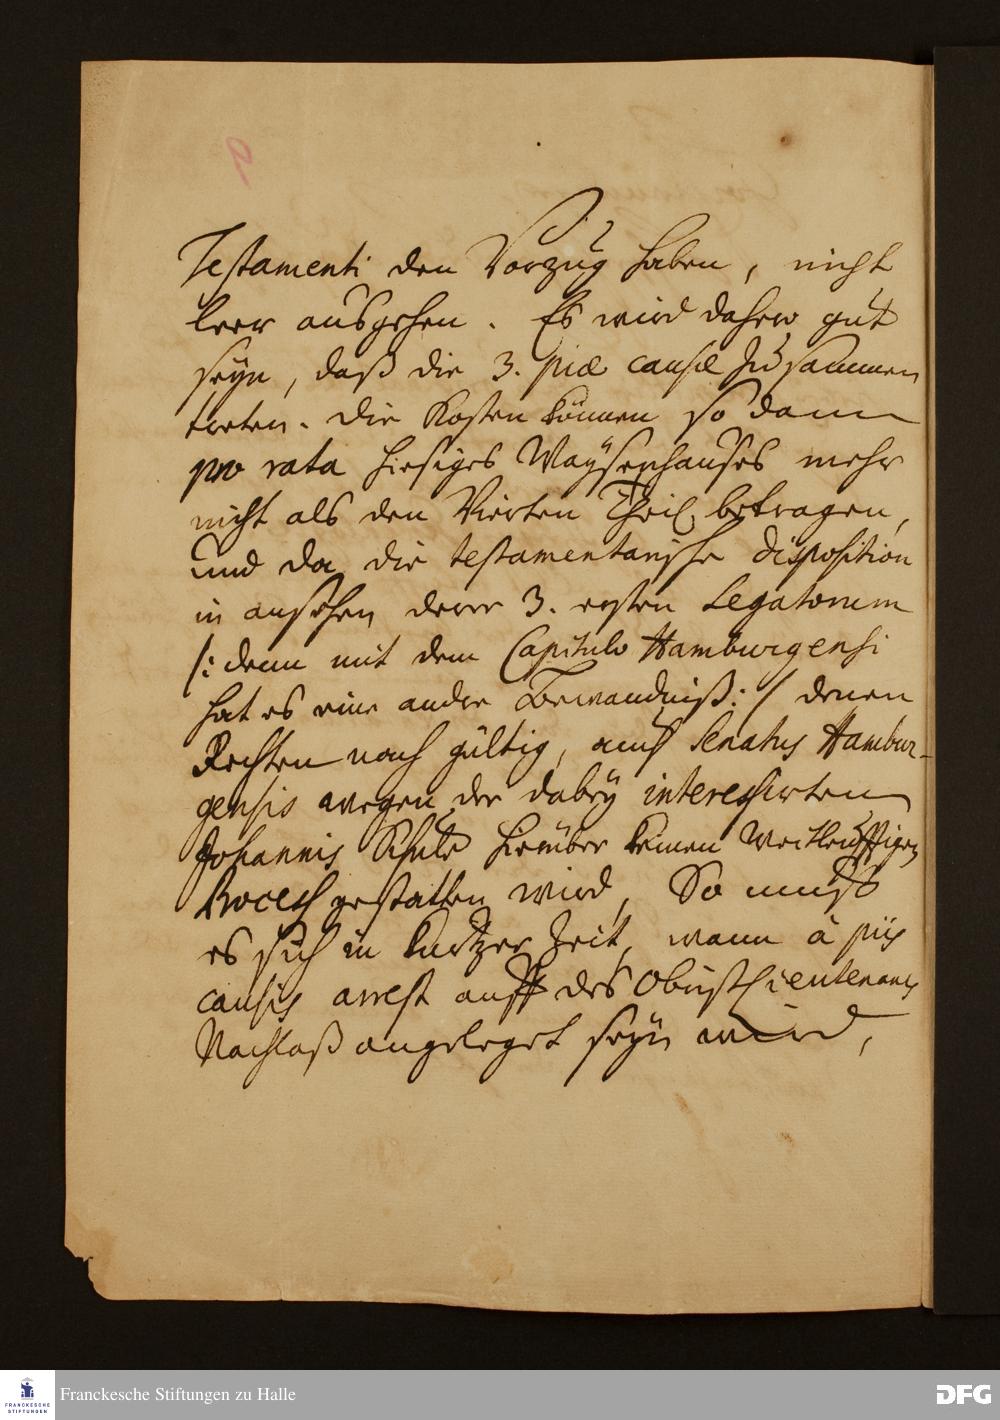 9
Testamenti den Vorzug haben, nicht
leer ausgehen. Es wird daher gut
seyn, daß die 3. piæ causæ zusammen
treten. Die Kosten können so dann
pro rata hiesiges Waysenhauses mehr
nicht als den Vierten Theil betragen,
und da die testamentarische disposition
in ansehen derer 3. ersten Legatorum
/: denn mit dem Capitulo Hamburgensi
hat es eine andre Bewandniß :/ denen
Rechten nach gültig, auch Senatus Hambur-
gensis wegen der dabey interessirten
Johannis Schule hierüber keinen Weitleufftigen
Process gestatten wird, So muß
es sich in kurtzer Zeit, wann à piis
causis arrest auff des Obristlieutenants
Nachlaß angeleget seyn wird,
FRANCKESCHE
STIFTUNGEN
Franckesche Stiftungen zu Halle
DFG